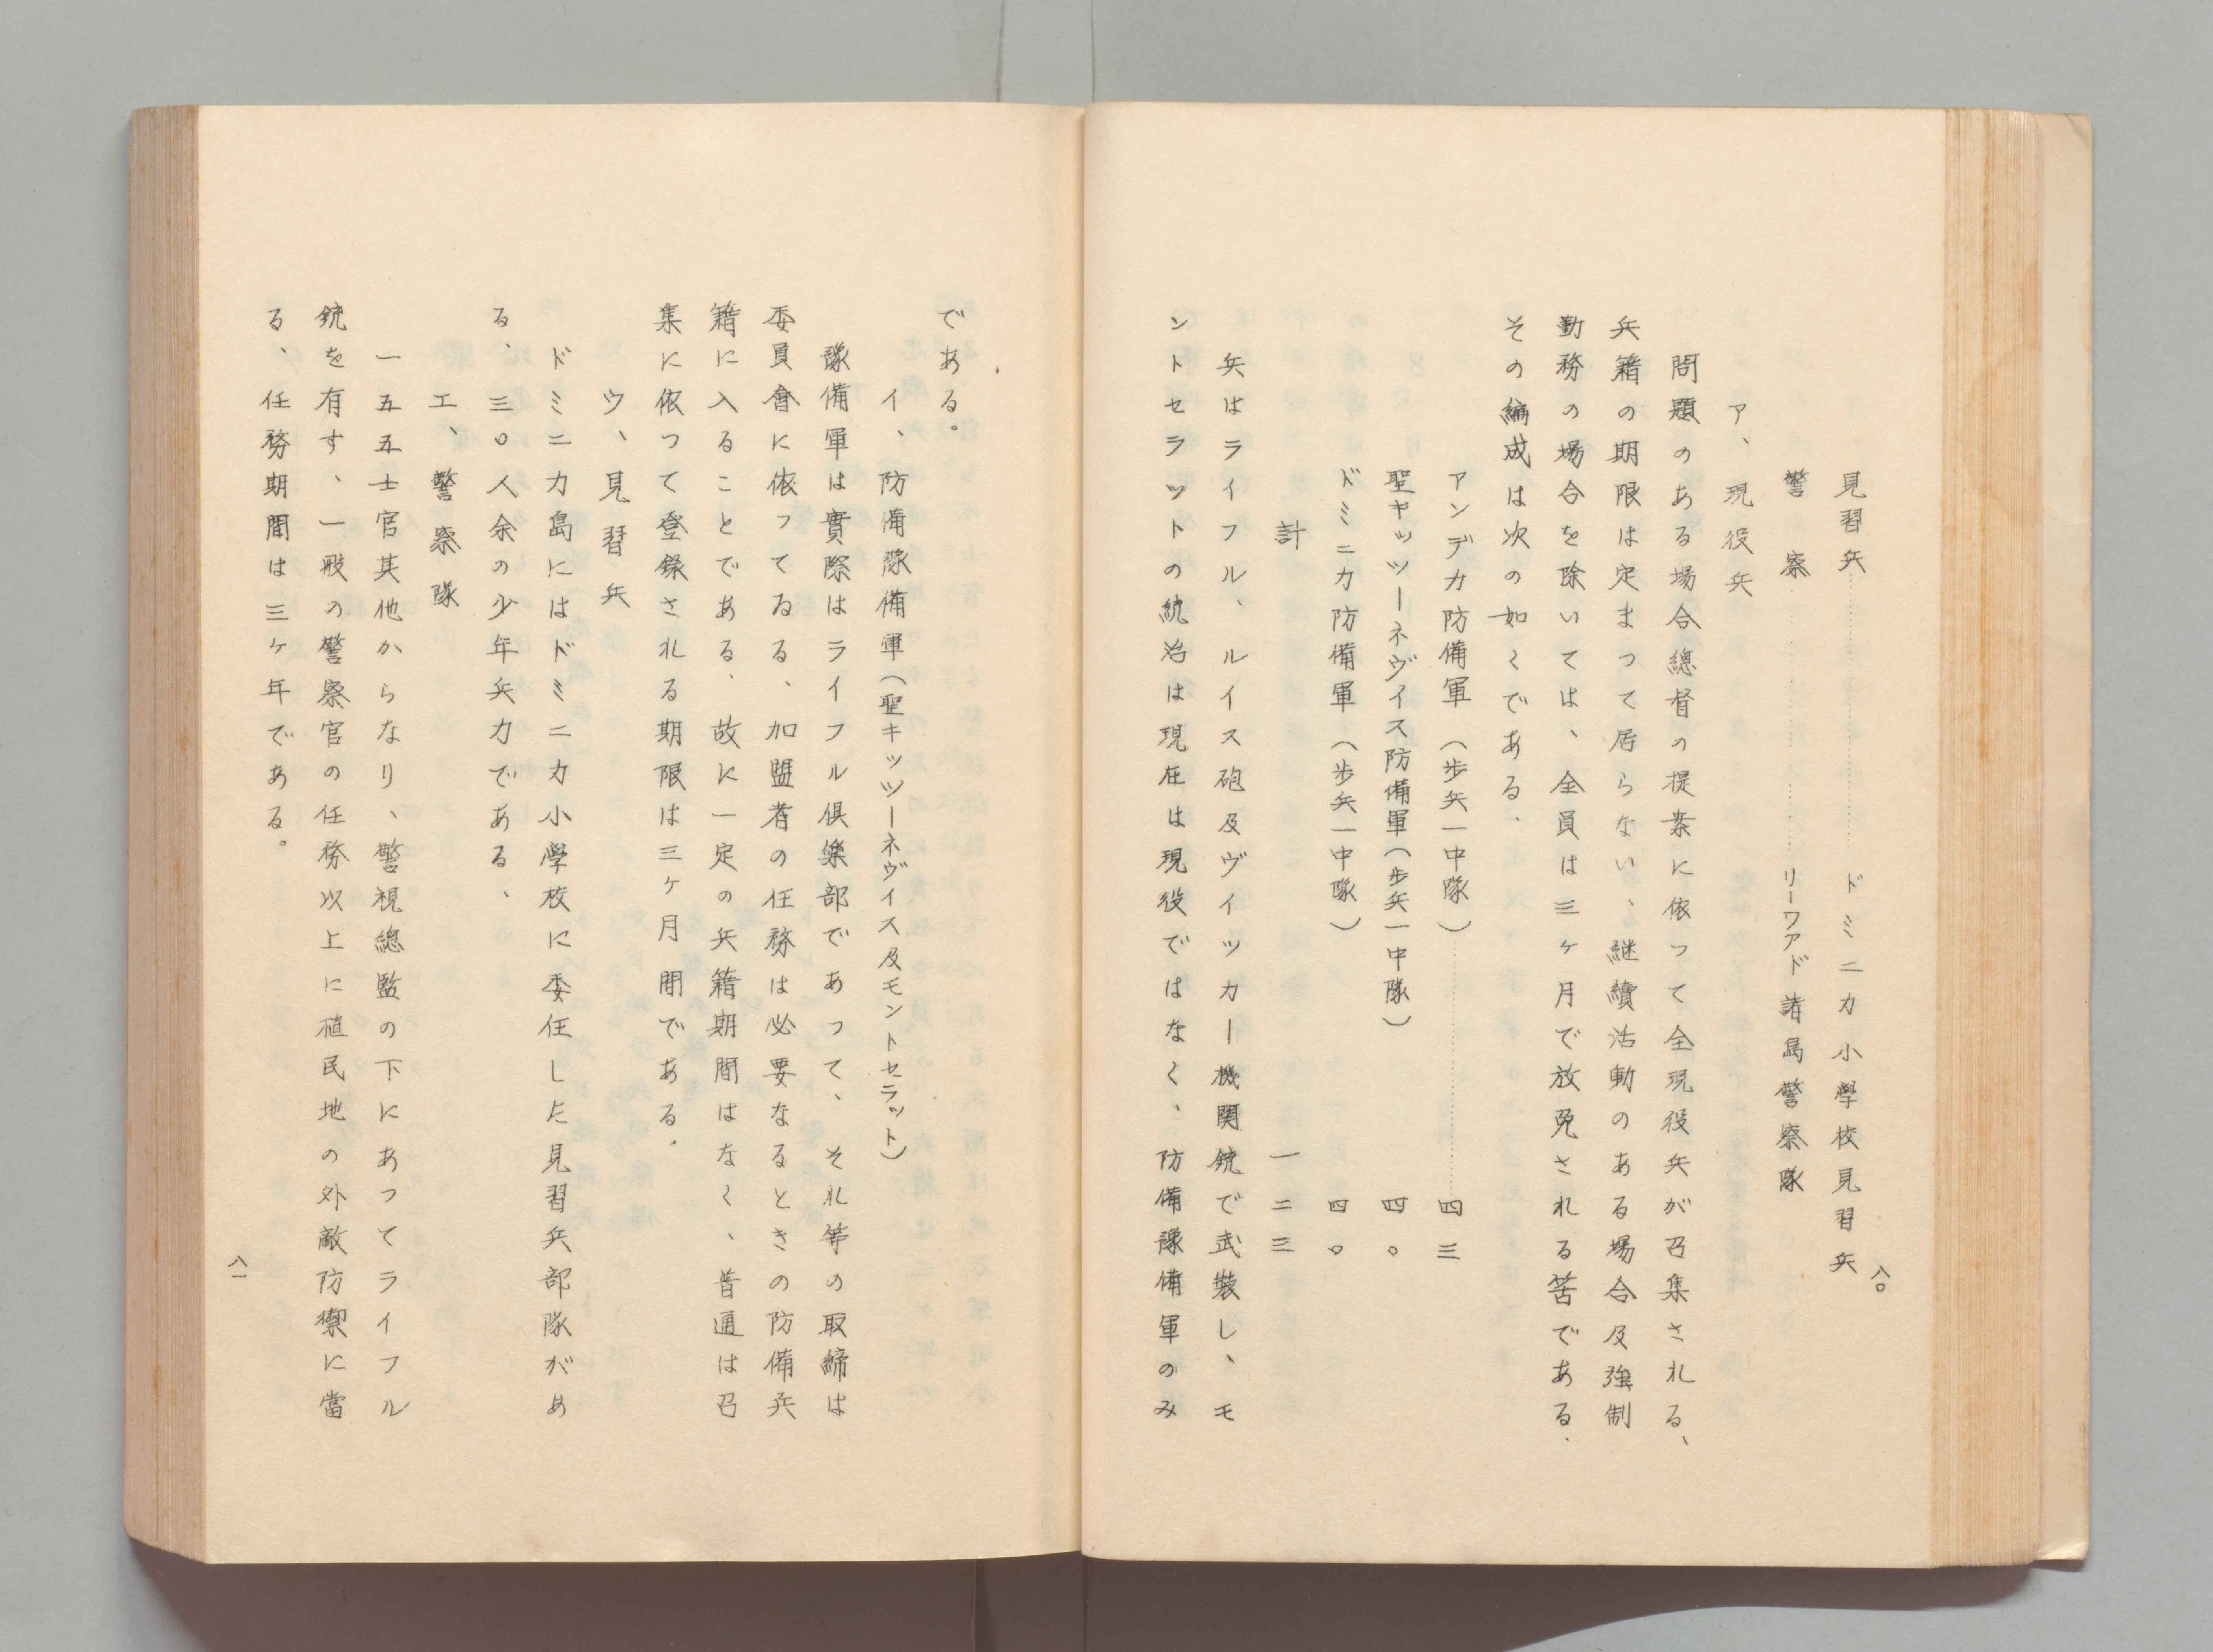 見習兵………………ドミニカ小學校見習兵
警　察………………リーワアド諸島警察隊
ア、現役兵
問題のある場合總督の提案に依つて全現役兵が召集される、
兵籍の期限は定まつて居らない、継續活動のある場合及強制
勤務の場合を除いては、全員は三ヶ月で放免される筈である．
その編成は次の如くである．
アンデカ防備軍（歩兵一中隊）………………四三
聖キッツーネヴイス防備軍（歩兵一中隊）　四〇
ドミニカ防備軍（歩兵一中隊）　四〇
計　一二三
兵はライフル、ルイス砲及ヴイツカー機関銃で武裝し、モ
ントセラツトの統治は現在は現役ではなく、防備豫備軍のみ
八〇
である。
イ、防備豫備軍（聖キッツーネヴイス及モントセラット）
豫備軍は實際はライフル倶樂部であつて、それ等の取締は
委員會に依つてゐる、加盟者の任務は必要なるときの防備兵
籍に入ることである、故に一定の兵籍期間はなく、普通は召
集に依つて登錄される期限は三ヶ月間である．
ウ、見習兵
ドミニカ島にはドミニカ小學校に委任した見習兵部隊があ
る、三〇人余の少年兵力である、
エ、警察隊
一五五士官其他からなり、警視總監の下にあつてライフル
銃を有す、一般の警察官の任務以上に植民地の外敵防禦に當
る、任務期間は三ヶ年である。
八一